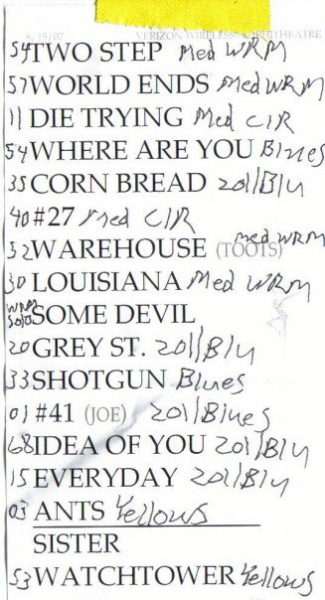 8/15/07 VERIZON WIRELESS AMPHITHEATRE
54 TWO STEP Med WRM
57 WORLD ENDS Med WRM
11 DIE TRYING Med CIR
54 WHERE ARE YOU Blues
35 CORN BREAD 201/Blu
40 #27 Med CIR
52 WAREHOUSE (TOOTS) Med WRM
30 LOUISIANA Med WRM
WRM Solo SOME DEVIL
20 GREY ST. 201/Blu
33 SHOTGUN Blues
01 #41 (JOE) 201/Blues
68 IDEA OF YOU 201/Blu
15 EVERYDAY 201/Blu
03 ANTS Yellows
SISTER
53 WATCHTOWER Yellows